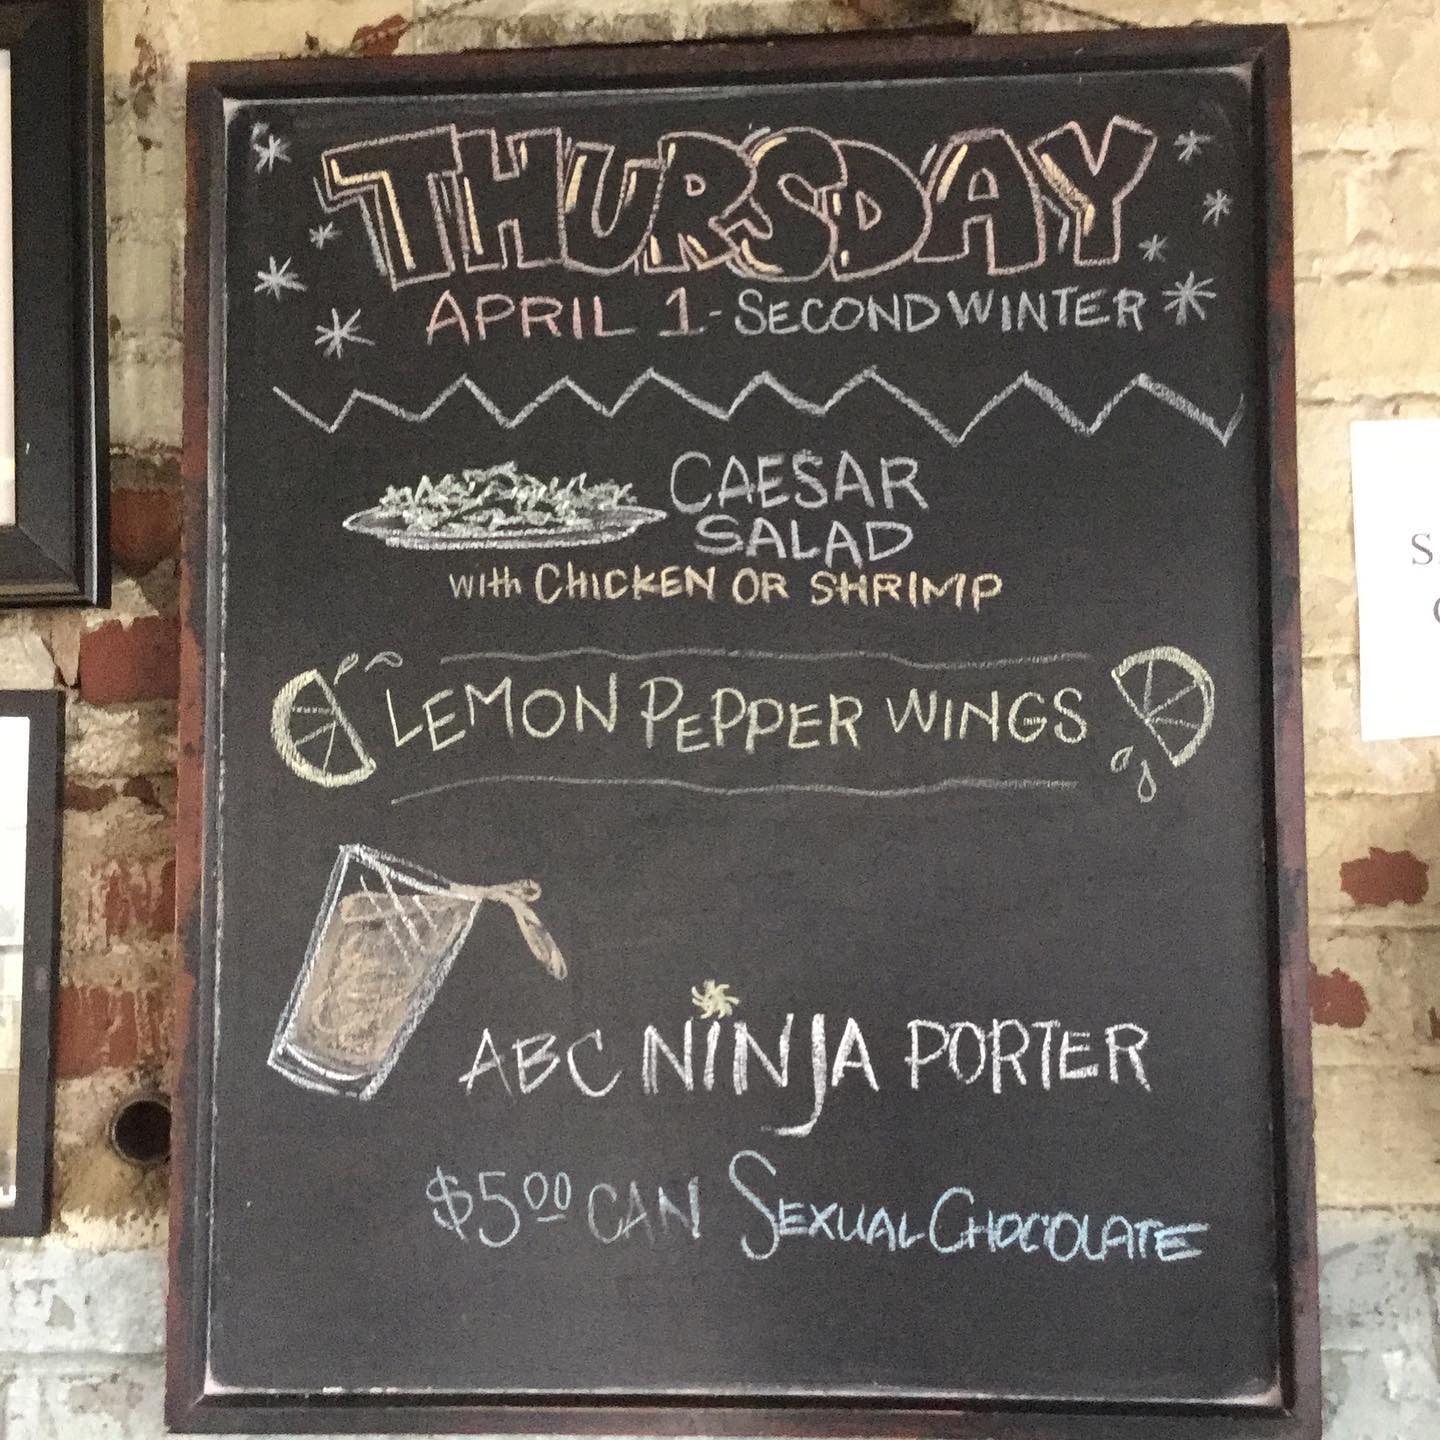 THURSDAY
APRIL 1 - SECOND WINTER
CAESAR
SALAD
with CHICKEN OR SHRIMP
LEMON PEPPER WINGS
ABC NINJA PORTER
$5.00 CAN SEXUAL CHOCOLATE